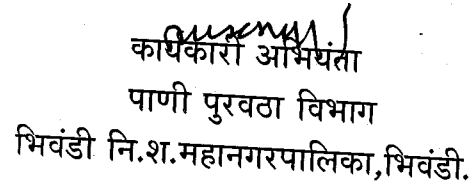 कार्यकारी अभियंता
पाणी पुरवठा विभाग
भिवंडी नि.श.महानगरपालिका,भिवंडी.